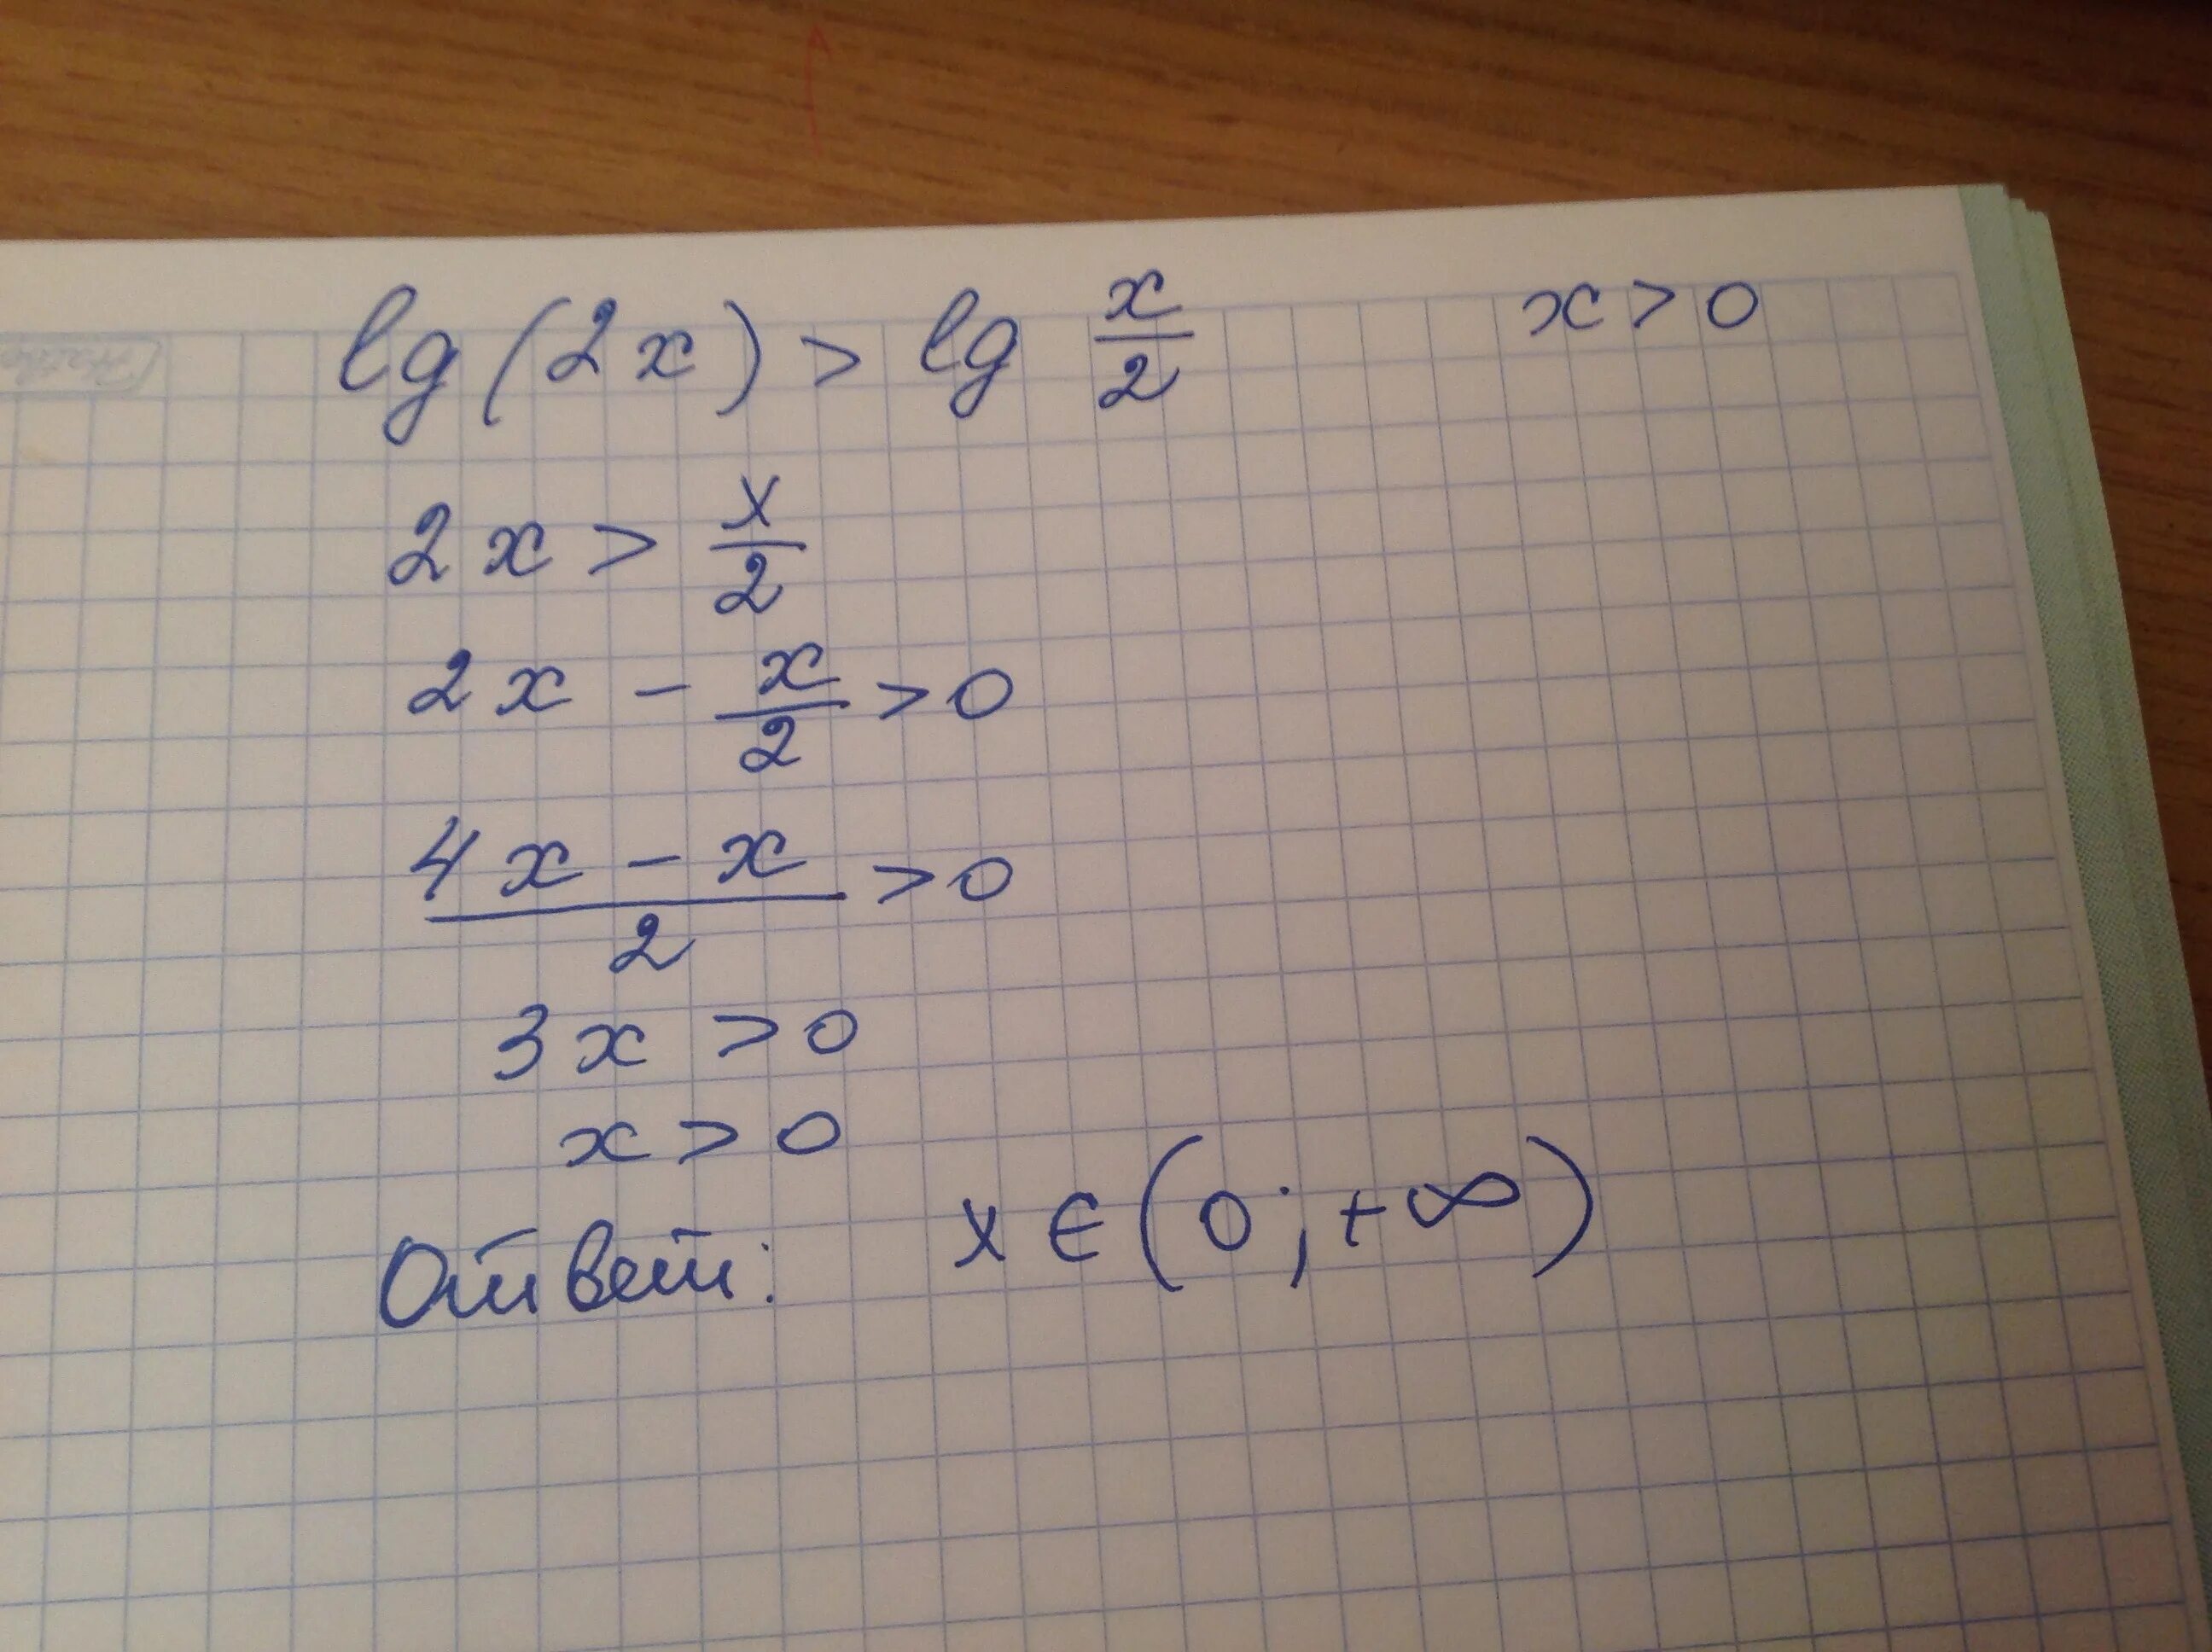 lg(2x) > lg x/2    x > 0
2x > x/2
2x - x/2 > 0
(4x - x)/2 > 0
3x > 0
x > 0
Ответ: x ∈ (0; +∞)